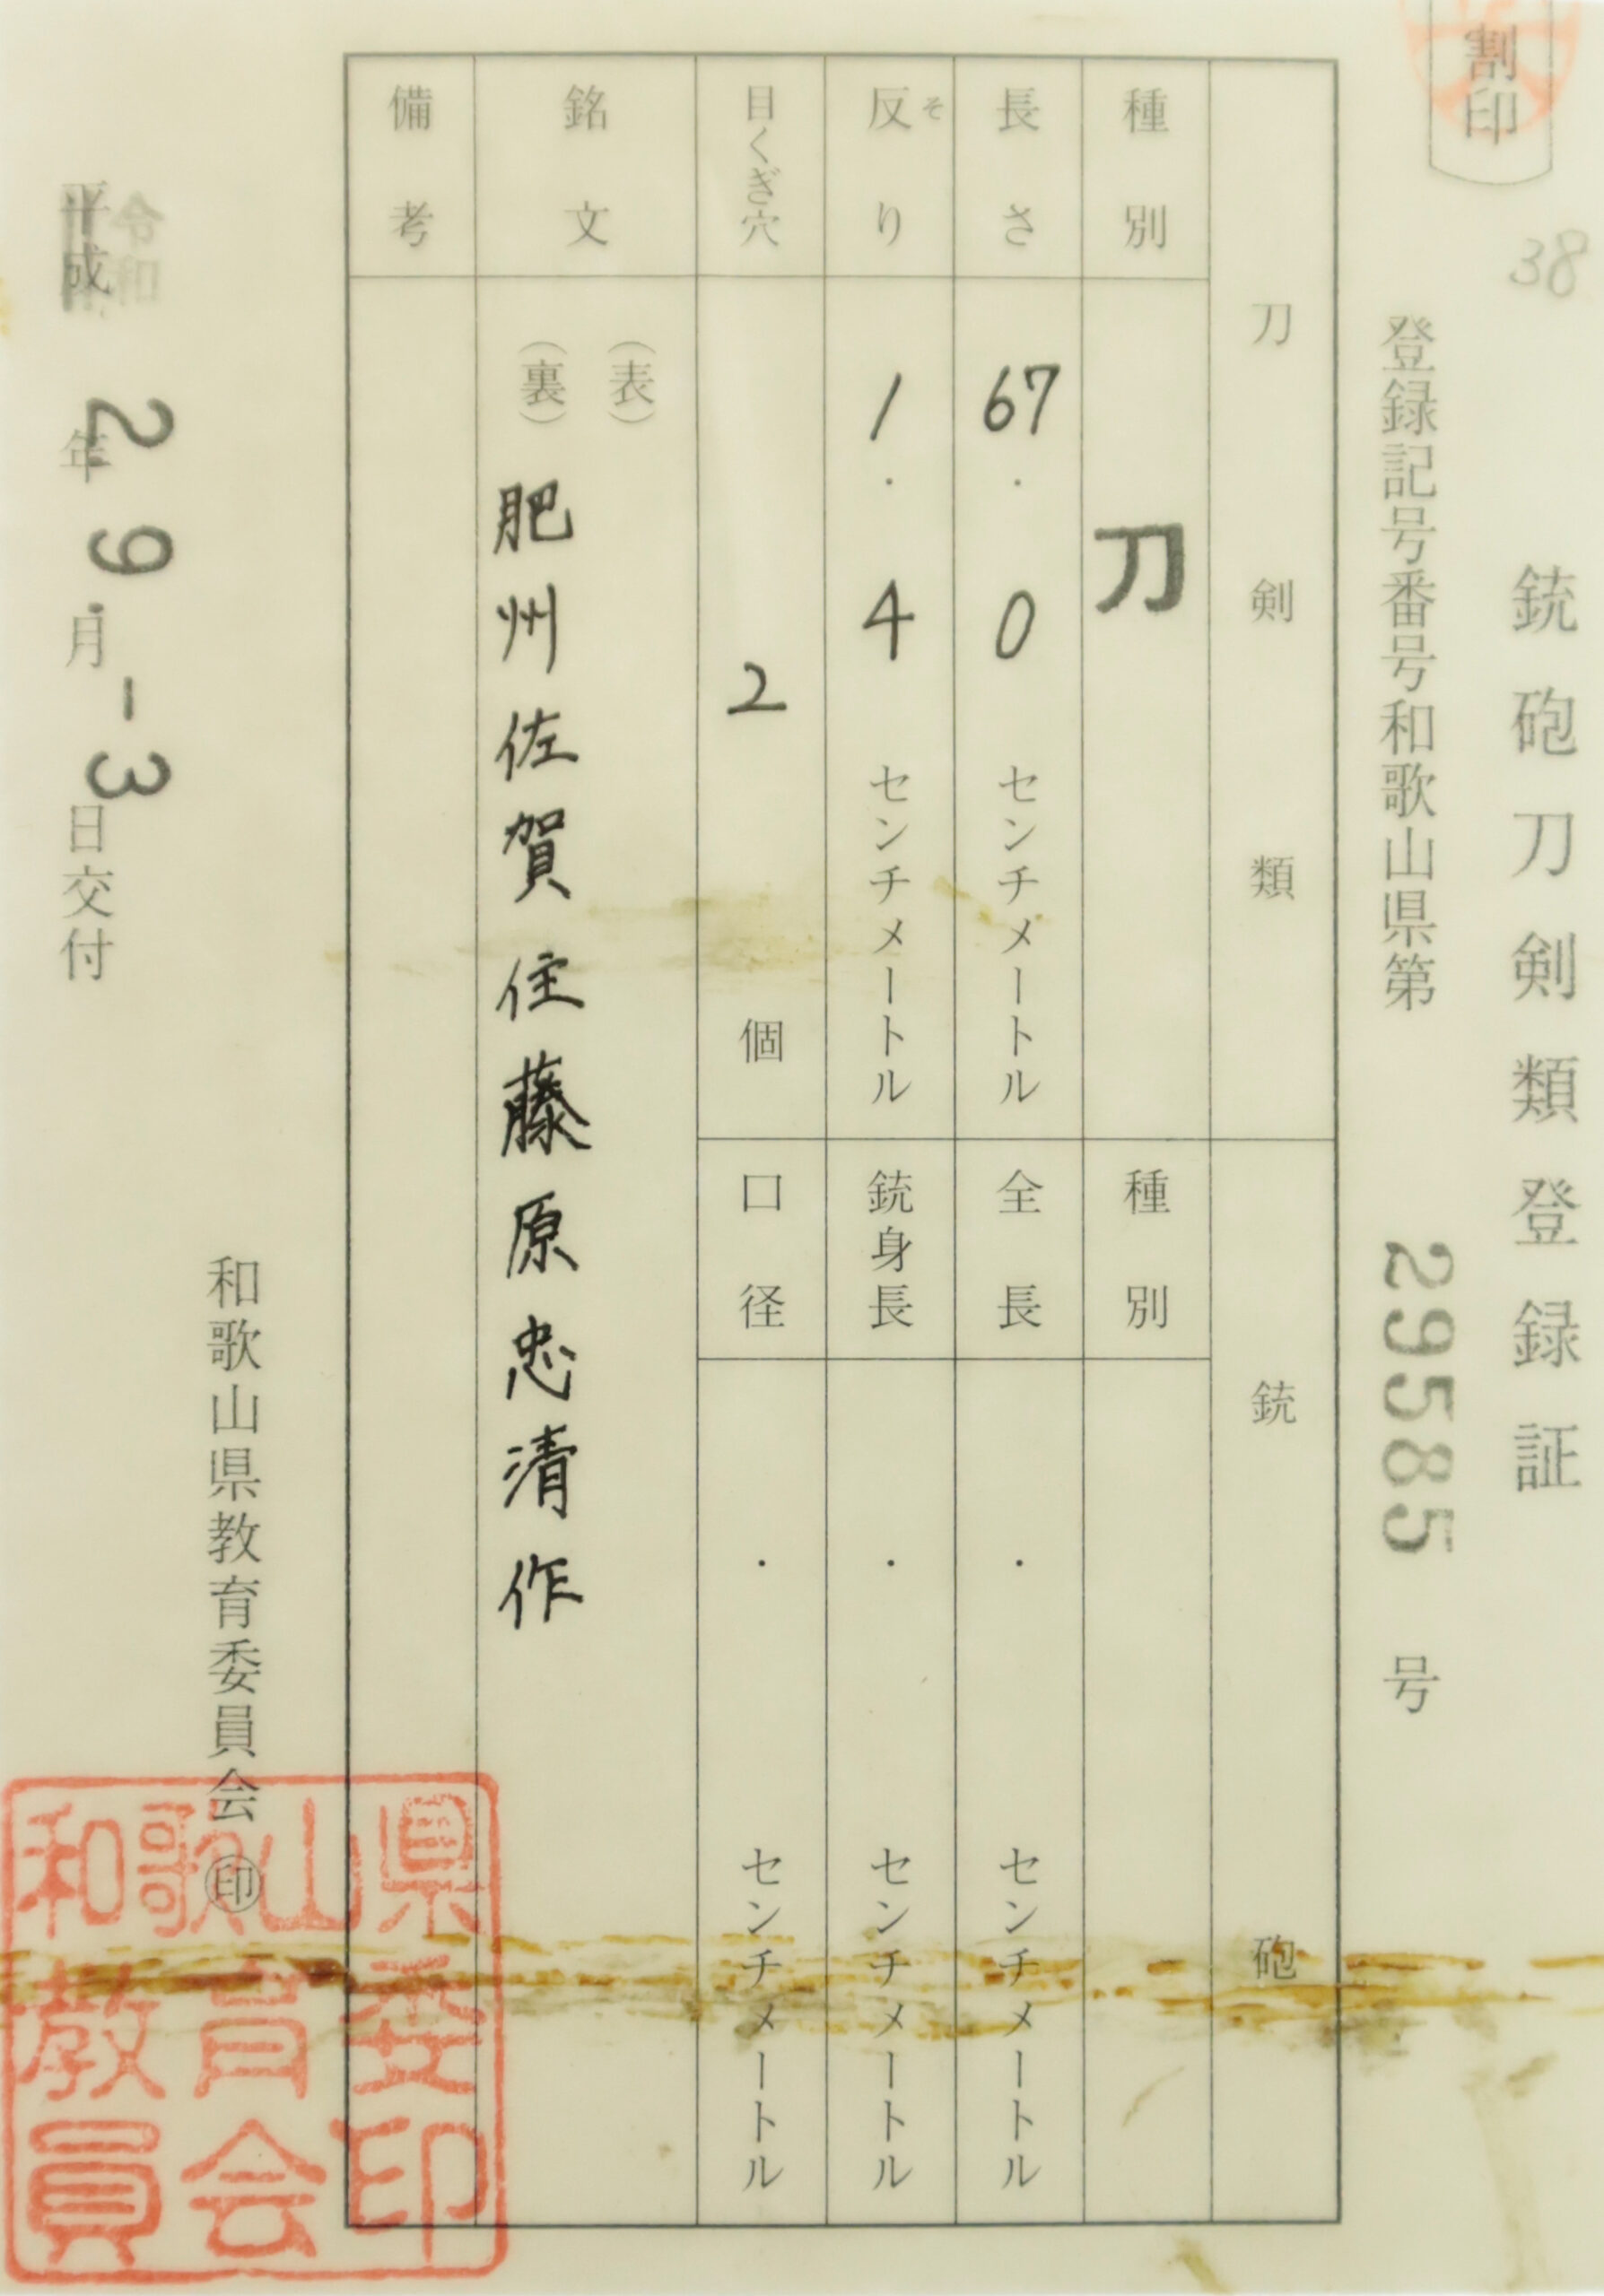 割印
38
銃砲刀剣類登録証
登録記号番号和歌山県第 29585 号
刀剣類
銃砲
種別 刀
種別
長さ 67.0 センチメートル
全長 ・ センチメートル
反り そ 1.4 センチメートル
銃身長 ・ センチメートル
目くぎ穴 2 個
口径 ・ センチメートル
銘文
(表)
(裏) 肥州佐賀住藤原忠清作
備考
和歌山県教育委員会 印
令和
平成 2年 9.月 -3日交付
和歌山県
教育委
員会印